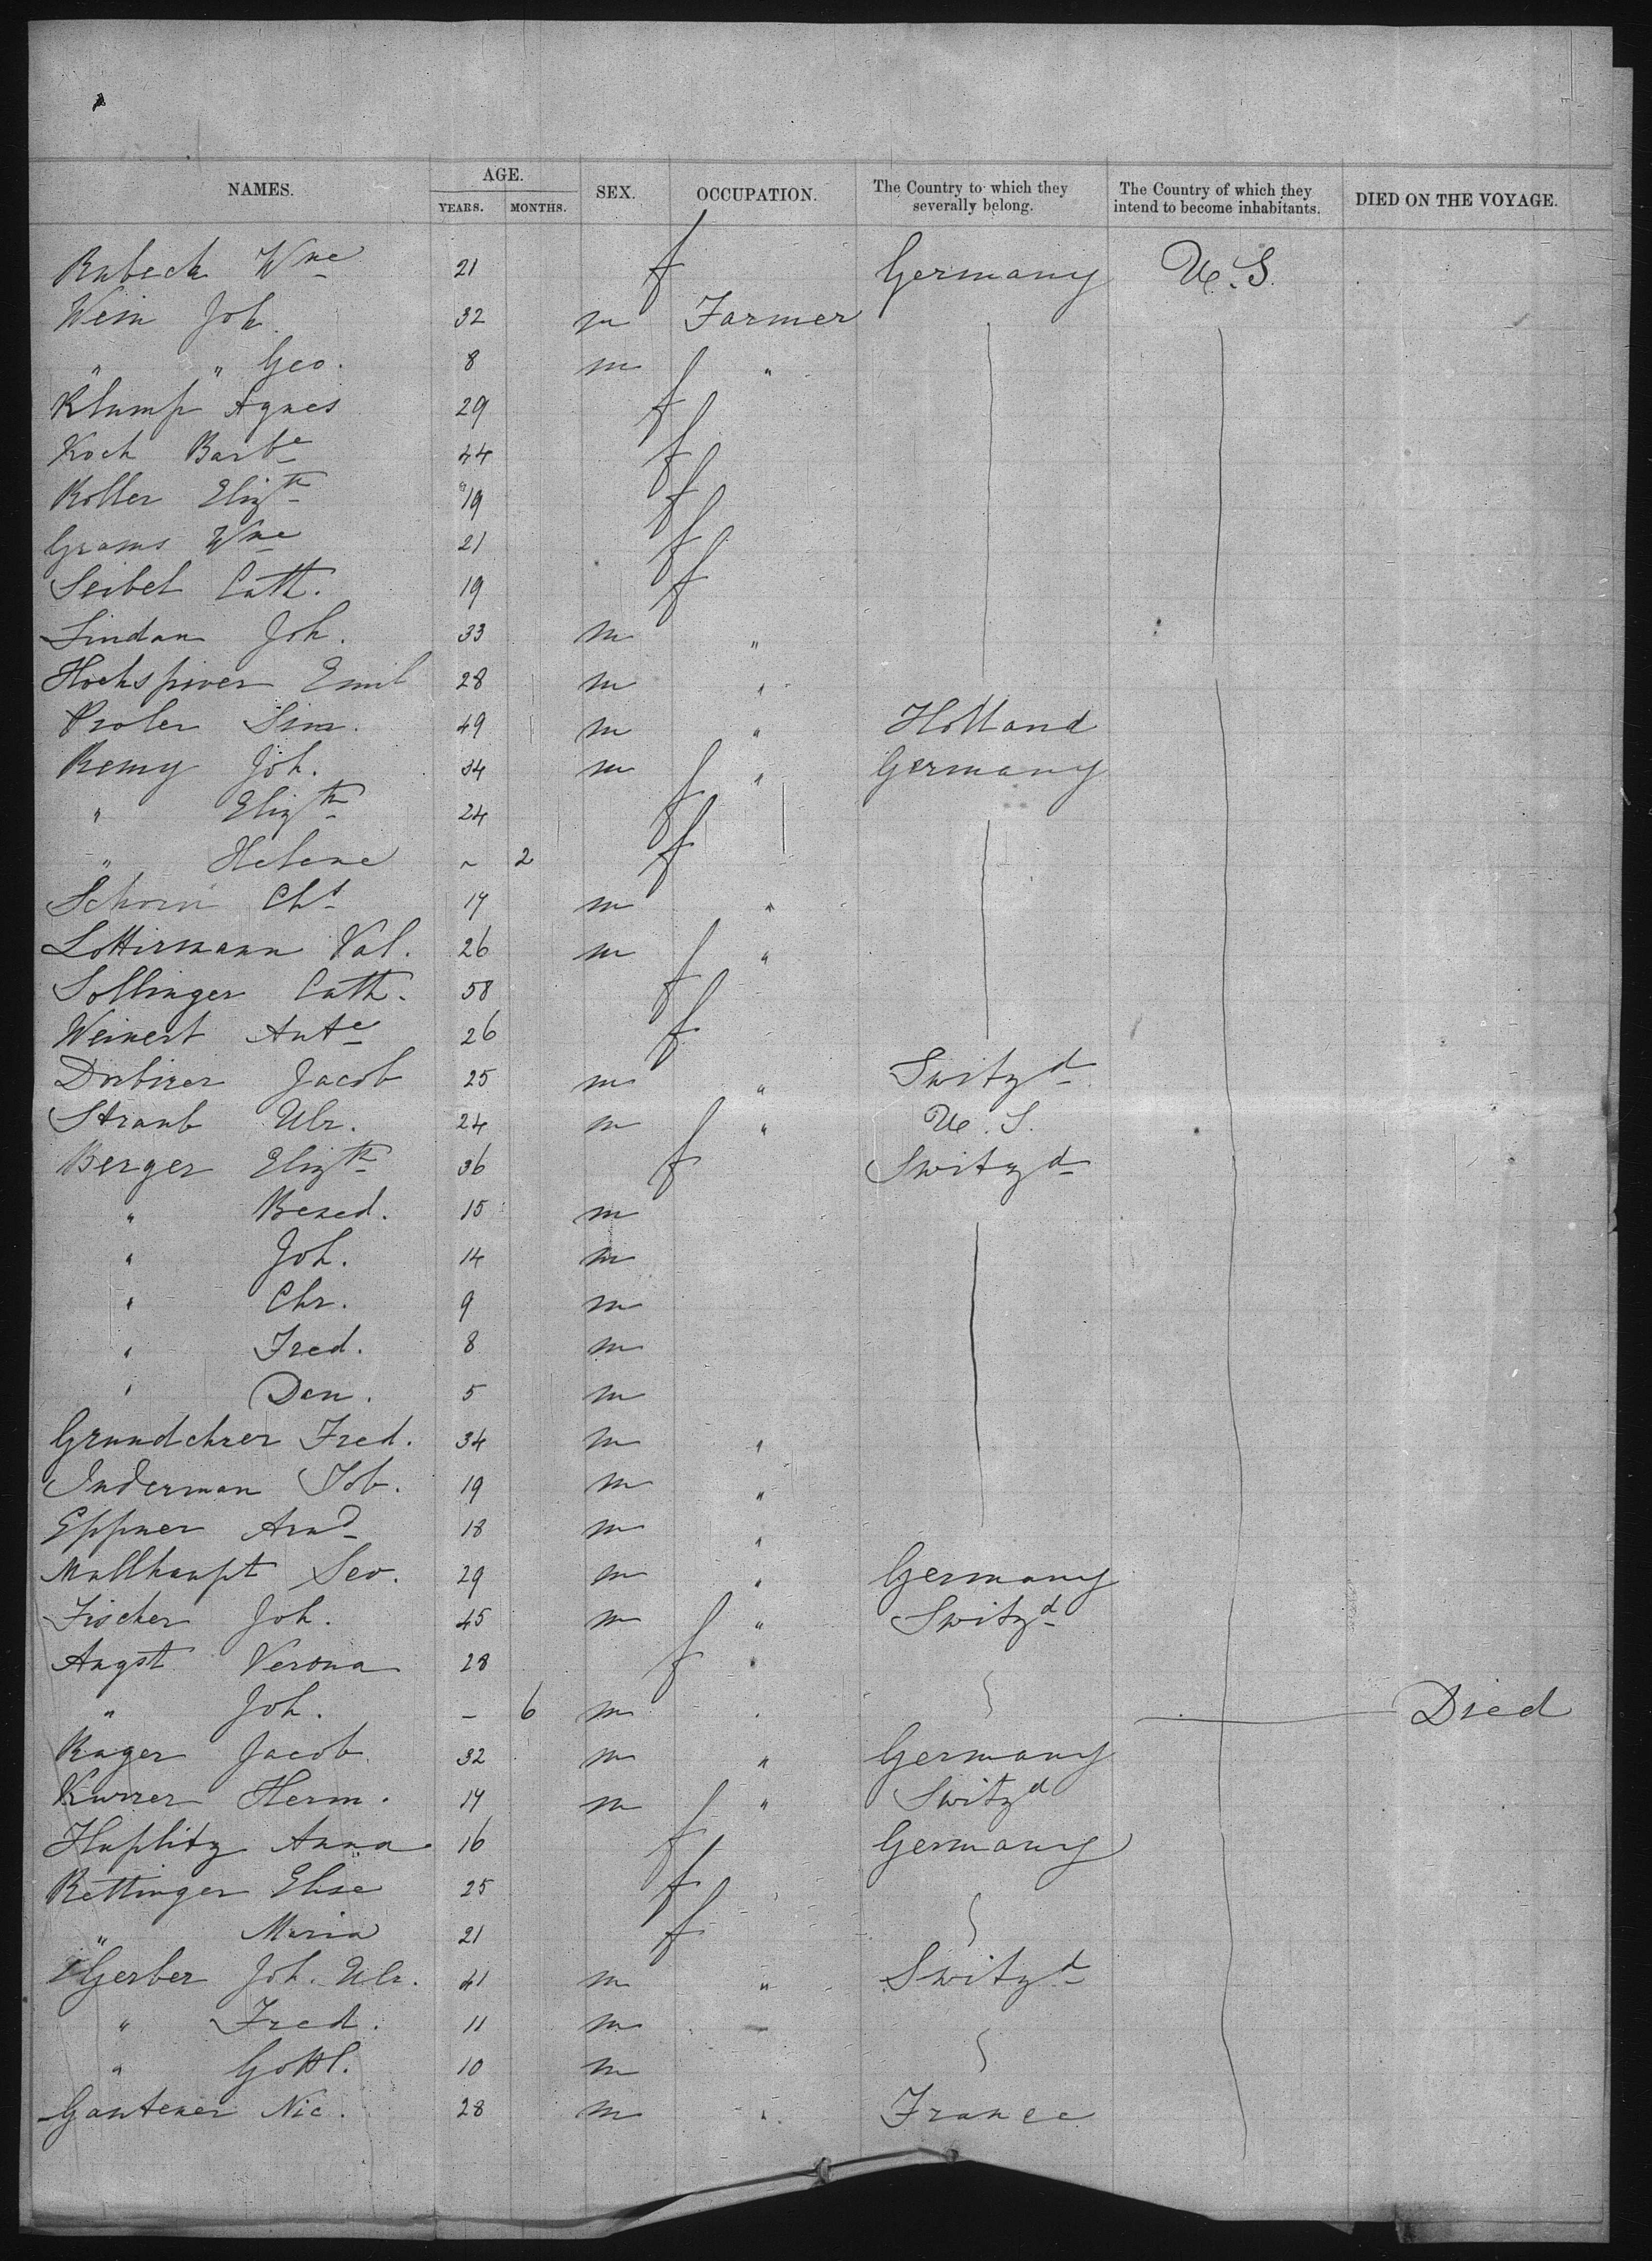 NAMES. AGE. YEARS. MONTHS. SEX. OCCUPATION. The Country to which they severally belong. The Country of which they intend to become inhabitants. DIED ON THE VOYAGE.
Rubeck Wne 21 f Germany U.S.
Wein Joh. 32 m Farmer
" " Geo. 8 m "
Klump Agnes 29 f
Koch Barbe 44 f
Koller Elizth 19 f
Grams Wne 21 f
Seibel Cath. 19 f
Lindau Joh. 33 m "
Emil 28 m "
Proler Sim. 49 m " Holland
Remy Joh. 34 m " Germany
" Elizth 24 f
" Helene 2 f
Schorn Chs 17 m "
Lottirmann Val. 26 m "
Sollinger Cath. 58 f
Weinert Ante 26 f
Dorbirer Jacob 25 m " Switzd
Straub Ulr. 24 m " U.S.
Berger Elizth 36 f Switzd
" Bened. 15 m
" Joh. 14 m
" Chr. 9 m
" Fred. 8 m
" Dan. 5 m
Fred. 34 m "
Inderman Job. 19 m "
Eppner Arnd 18 m "
Mullhaupt Sev. 29 m " Germany
Fischer Joh. 45 m " Switzd
Angst Verona 28 f "
" Joh. – 6 m Died
Rager Jacob 32 m " Germany
Kurrer Herm. 17 m " Switzd
Huplitz Anna 16 f Germany
Rettinger Elise 25 f
" Maria 21 f
Gerber Joh. Ulr. 41 m " Switzd
" Fred. 11 m
" Gottl. 10 m
Gantener Nic. 28 m " France